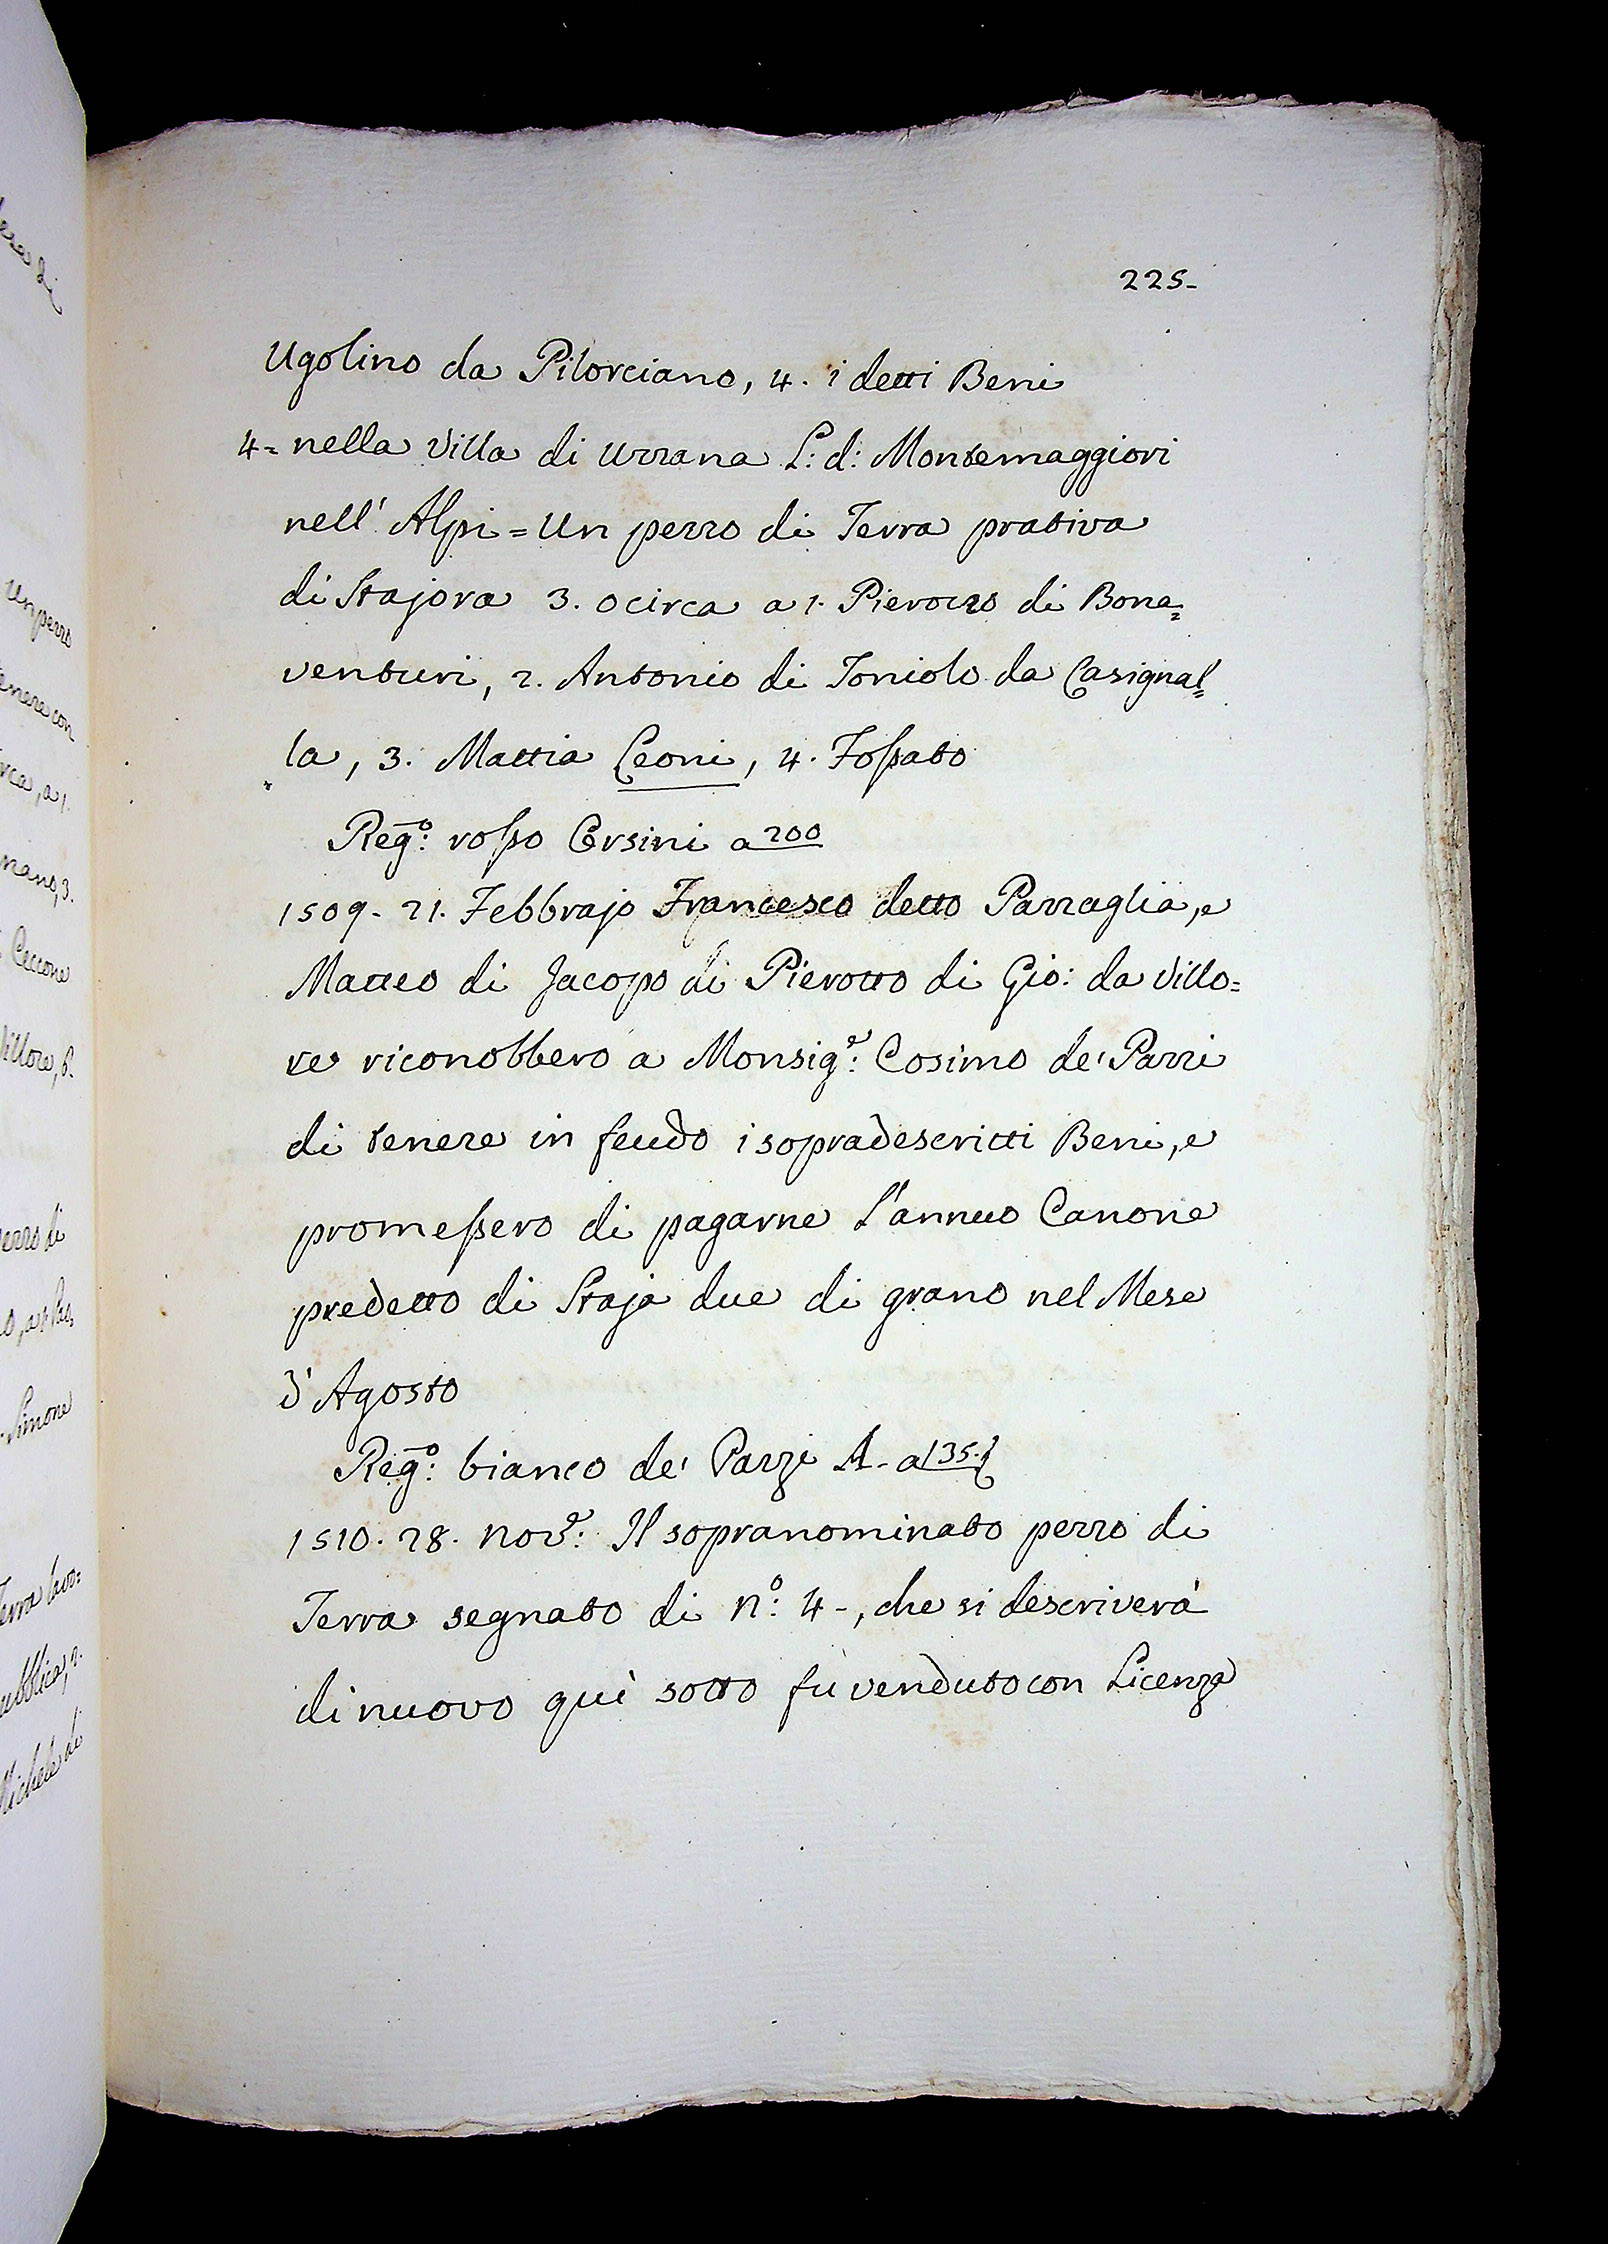 225-
Ugolino da Pilorciano, 4. i detti Beni
4= nella Villa di Uzzana L: d: Montemaggiori
nell' Alpi = Un pezzo di Terra prativa
di Stajora 3. o circa a 1. Pierozzo di Bona=
venturi, 2. Antonio di Toniolo da Casignal=
la, 3. Mattia Leoni, 4. Fossato
Reg.º: rosso Corsini a 200
1509. 21. Febbrajo Francesco detto Pazzaglia, e
Matteo di Jacopo di Pierotto di Gio: da Villo=
re riconobbero a Monsig.e: Cosimo de' Pazzi
di tenere in feudo i sopradescritti Beni, e
promessero di pagarne l'annuo Canone
predetto di Staja due di grano nel Mese
d'Agosto
Reg.º: bianco de' Pazzi A. a 135.
1510. 28. Nov.e: Il sopranominato pezzo di
Terra segnato di n.º: 4-, che si descriverà
di nuovo quì sotto fù venduto con Licenza
Un pezzo
enere con
rca, a 1.
mano, 3.
Ceccone
Villore, 6.
ezzo di
Simone
Terra lavo=
ubblica, 2.
Michele di